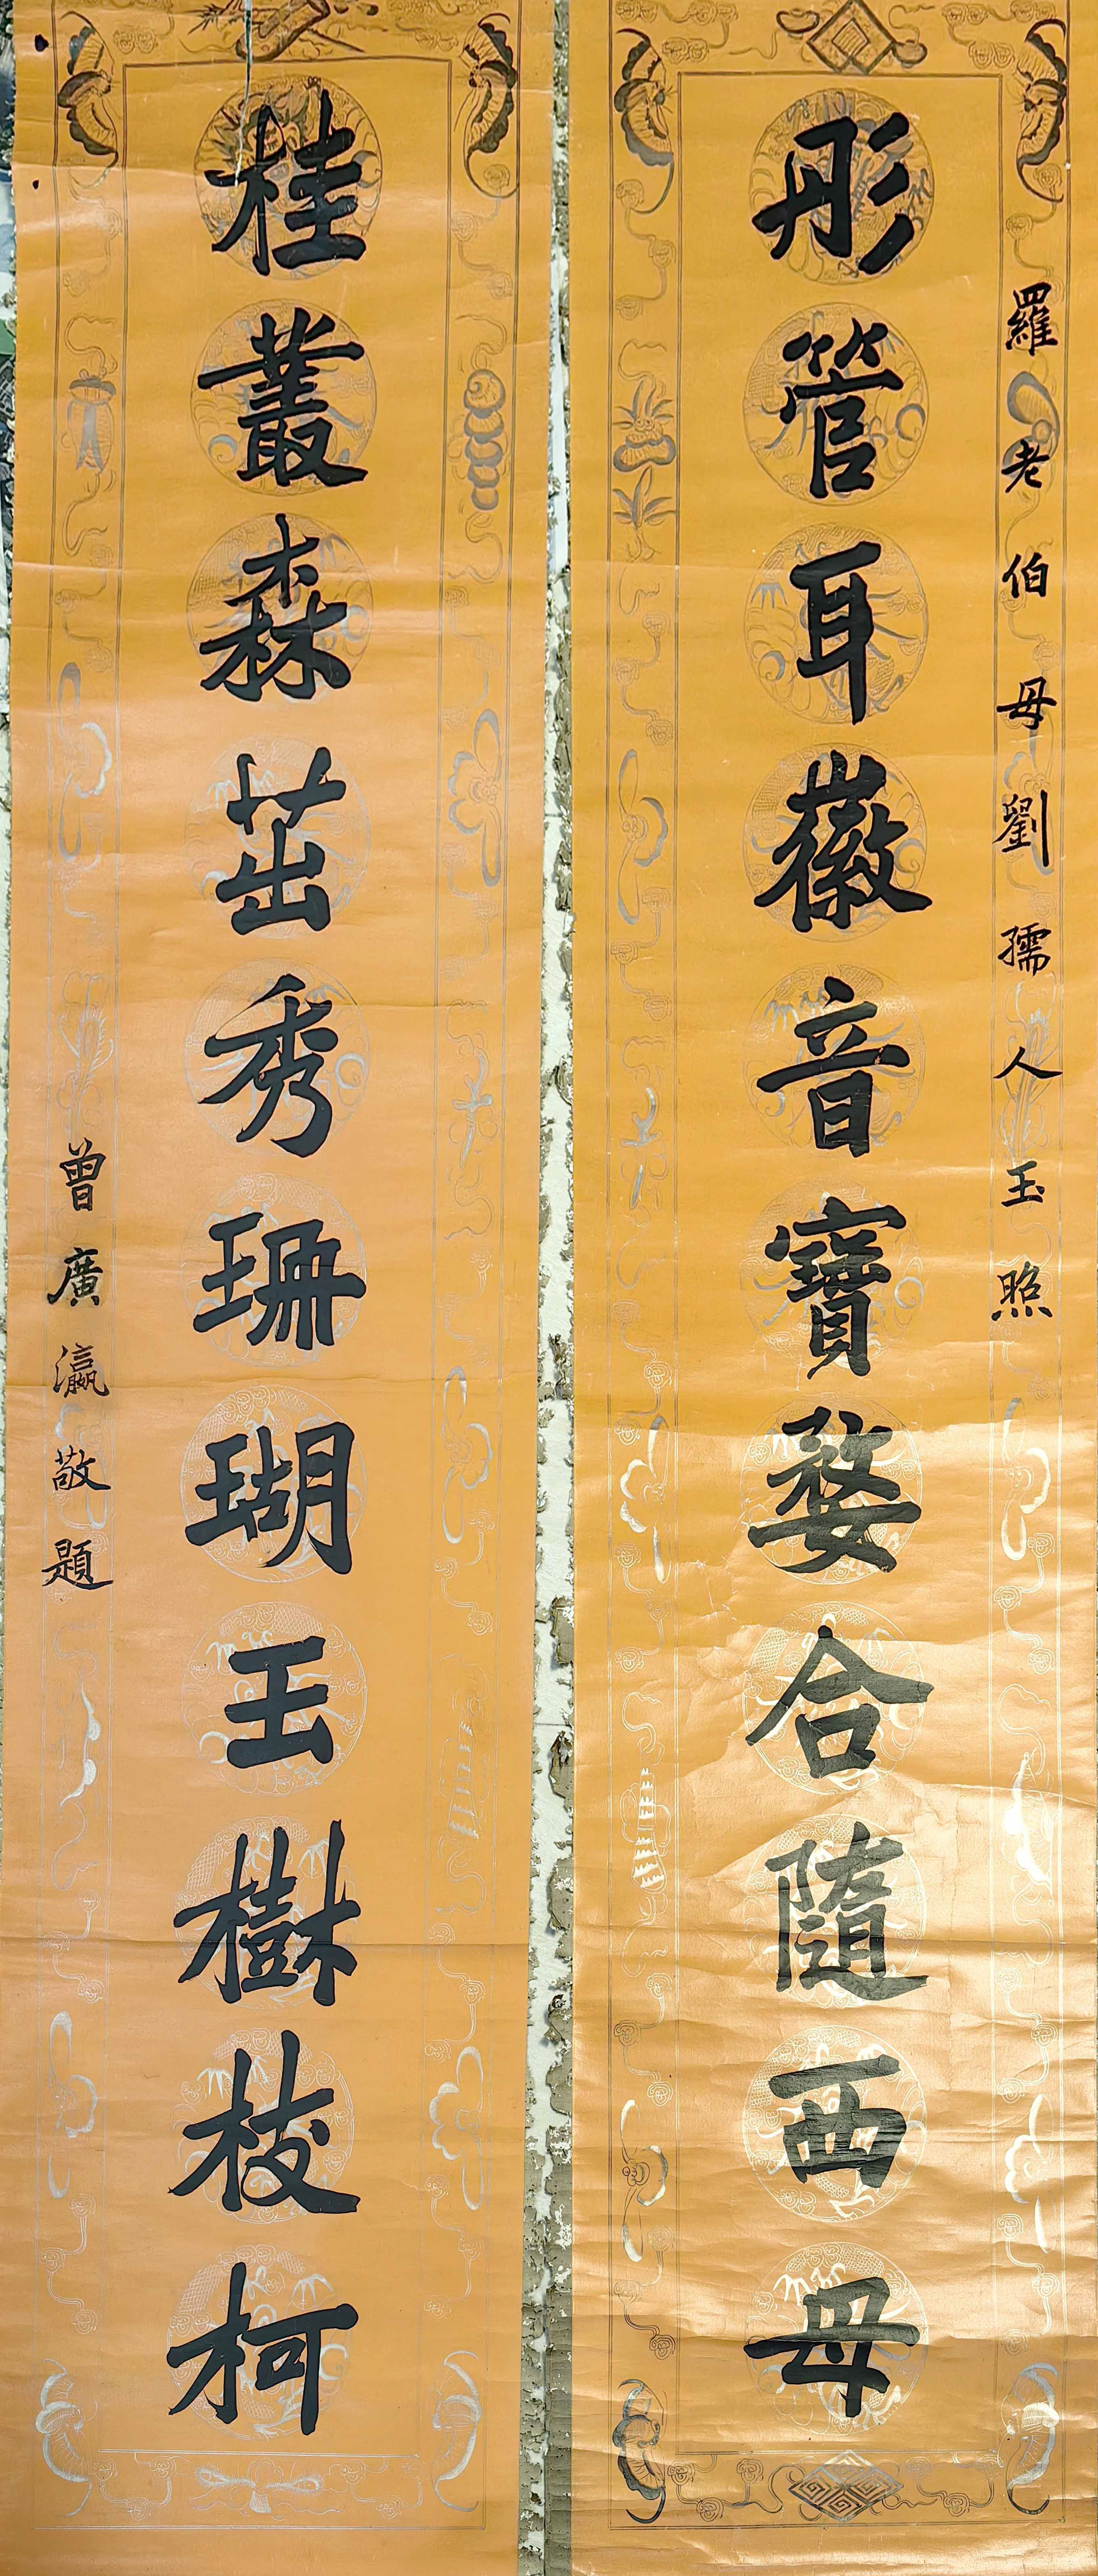 羅老伯母劉孺人玉照
彤管耳徽音寶婺合隨西母
桂叢森茁秀珊瑚玉樹枝柯
曾廣瀛敬題